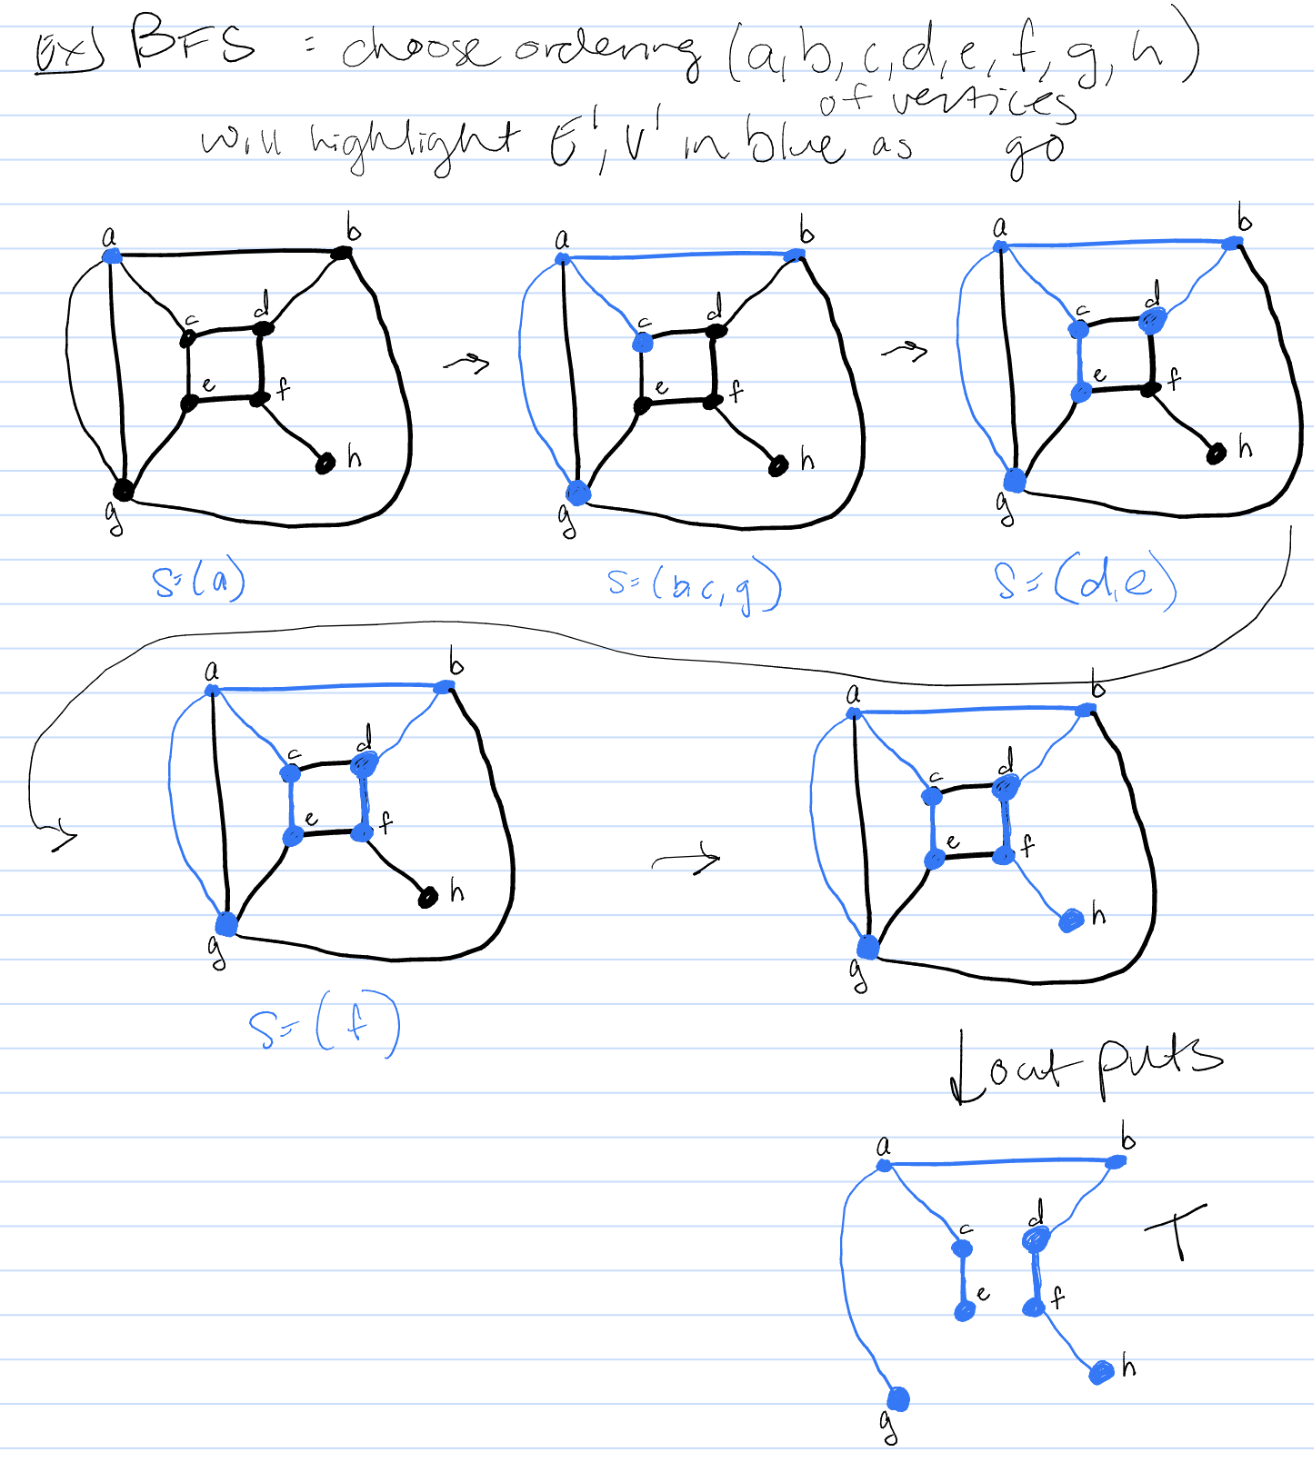 Ex) BFS : choose ordering (a, b, c, d, e, f, g, h)
of vertices
will highlight E', V' in blue as go
a b c d e f g h
a b c d e f g h
a b c d e f g h
S=(a)
S=(b, c, g)
S=(d, e)
a b c d e f g h
a b c d e f g h
S=(f)
outputs
a b c d e f g h
T